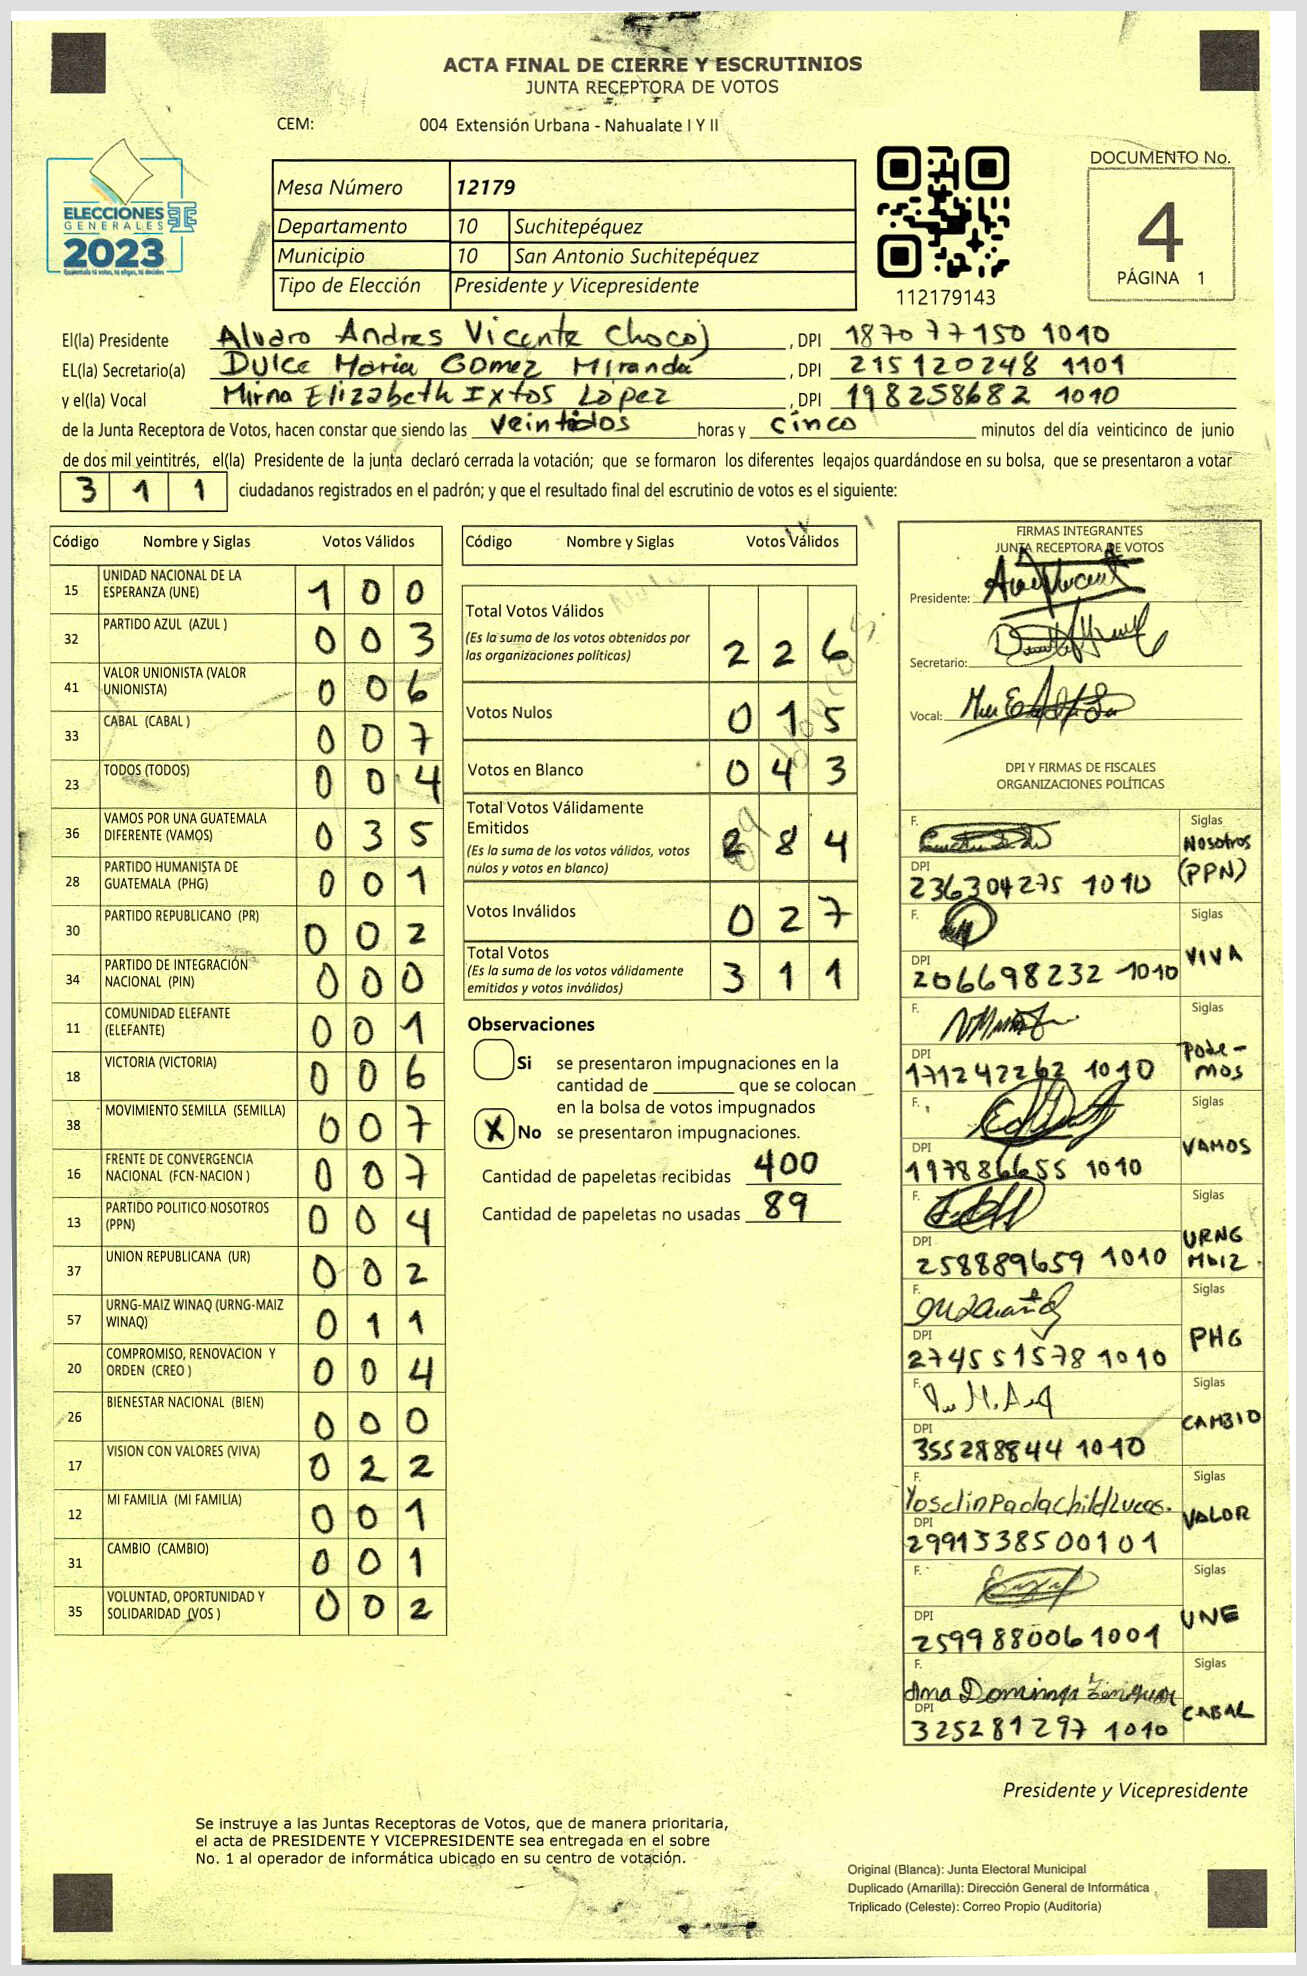 ACTA FINAL DE CIERRE Y ESCRUTINIOS
JUNTA RECEPTORA DE VOTOS
CEM: 004 Extensión Urbana - Nahualate I Y II
ELECCIONES
GENERALES
2023
Mesa Número 12179
Departamento 10 Suchitepéquez
Municipio 10 San Antonio Suchitepéquez
Tipo de Elección Presidente y Vicepresidente
112179143
DOCUMENTO No.
4
PÁGINA 1
El(la) Presidente Alvaro Andres Vicente Chocoj , DPI 187077150 1010
EL(la) Secretario(a) Dulce Maria Gomez Miranda , DPI 215120248 1101
y el(la) Vocal Mirna Elizabeth Ixtos López , DPI 198258682 1010
de la Junta Receptora de Votos, hacen constar que siendo las veintidos horas y cinco minutos del día veinticinco de junio
de dos mil veintitrés, el(la) Presidente de la junta declaró cerrada la votación; que se formaron los diferentes legajos guardándose en su bolsa, que se presentaron a votar
311 ciudadanos registrados en el padrón; y que el resultado final del escrutinio de votos es el siguiente:
Código Nombre y Siglas Votos Válidos
15 UNIDAD NACIONAL DE LA ESPERANZA (UNE) 100
32 PARTIDO AZUL (AZUL ) 003
41 VALOR UNIONISTA (VALOR UNIONISTA) 006
33 CABAL (CABAL ) 007
23 TODOS (TODOS) 004
36 VAMOS POR UNA GUATEMALA DIFERENTE (VAMOS) 035
28 PARTIDO HUMANISTA DE GUATEMALA (PHG) 001
30 PARTIDO REPUBLICANO (PR) 002
34 PARTIDO DE INTEGRACIÓN NACIONAL (PIN) 000
11 COMUNIDAD ELEFANTE (ELEFANTE) 001
18 VICTORIA (VICTORIA) 006
38 MOVIMIENTO SEMILLA (SEMILLA) 007
16 FRENTE DE CONVERGENCIA NACIONAL (FCN-NACION ) 007
13 PARTIDO POLITICO NOSOTROS (PPN) 004
37 UNION REPUBLICANA (UR) 002
57 URNG-MAIZ WINAQ (URNG-MAIZ WINAQ) 011
20 COMPROMISO, RENOVACION Y ORDEN (CREO ) 004
26 BIENESTAR NACIONAL (BIEN) 000
17 VISION CON VALORES (VIVA) 022
12 MI FAMILIA (MI FAMILIA) 001
31 CAMBIO (CAMBIO) 001
35 VOLUNTAD, OPORTUNIDAD Y SOLIDARIDAD (VOS ) 002
Código Nombre y Siglas Votos Válidos
Total Votos Válidos 226
(Es la suma de los votos obtenidos por
las organizaciones políticas)
Votos Nulos 015
Votos en Blanco 043
Total Votos Válidamente
Emitidos 284
(Es la suma de los votos válidos, votos
nulos y votos en blanco)
Votos Inválidos 027
Total Votos 311
(Es la suma de los votos válidamente
emitidos y votos inválidos)
Observaciones
Si se presentaron impugnaciones en la
cantidad de ________ que se colocan
en la bolsa de votos impugnados
X No se presentaron impugnaciones.
Cantidad de papeletas recibidas 400
Cantidad de papeletas no usadas 89
FIRMAS INTEGRANTES
JUNTA RECEPTORA DE VOTOS
Presidente:
Secretario:
Vocal:
DPI Y FIRMAS DE FISCALES
ORGANIZACIONES POLÍTICAS
F. Siglas Nosotros (PPN)
DPI 236304275 1010
F. Siglas VIVA
DPI 206698232 1010
F. Siglas Pode-mos
DPI 171242262 1010
F. Siglas VAMOS
DPI 197886655 1010
F. Siglas URNG MAIZ
DPI 258889659 1010
F. Siglas PHG
DPI 274551578 1010
F. Siglas CAMBIO
DPI 355288844 1010
F. Siglas VALOR
DPI 2991538500101
F. Siglas UNE
DPI 2599880061001
F. Ana Siglas CABAL
DPI 325281297 1010
Presidente y Vicepresidente
Se instruye a las Juntas Receptoras de Votos, que de manera prioritaria,
el acta de PRESIDENTE Y VICEPRESIDENTE sea entregada en el sobre
No. 1 al operador de informática ubicado en su centro de votación.
Original (Blanca): Junta Electoral Municipal
Duplicado (Amarilla): Dirección General de Informática
Triplicado (Celeste): Correo Propio (Auditoría)